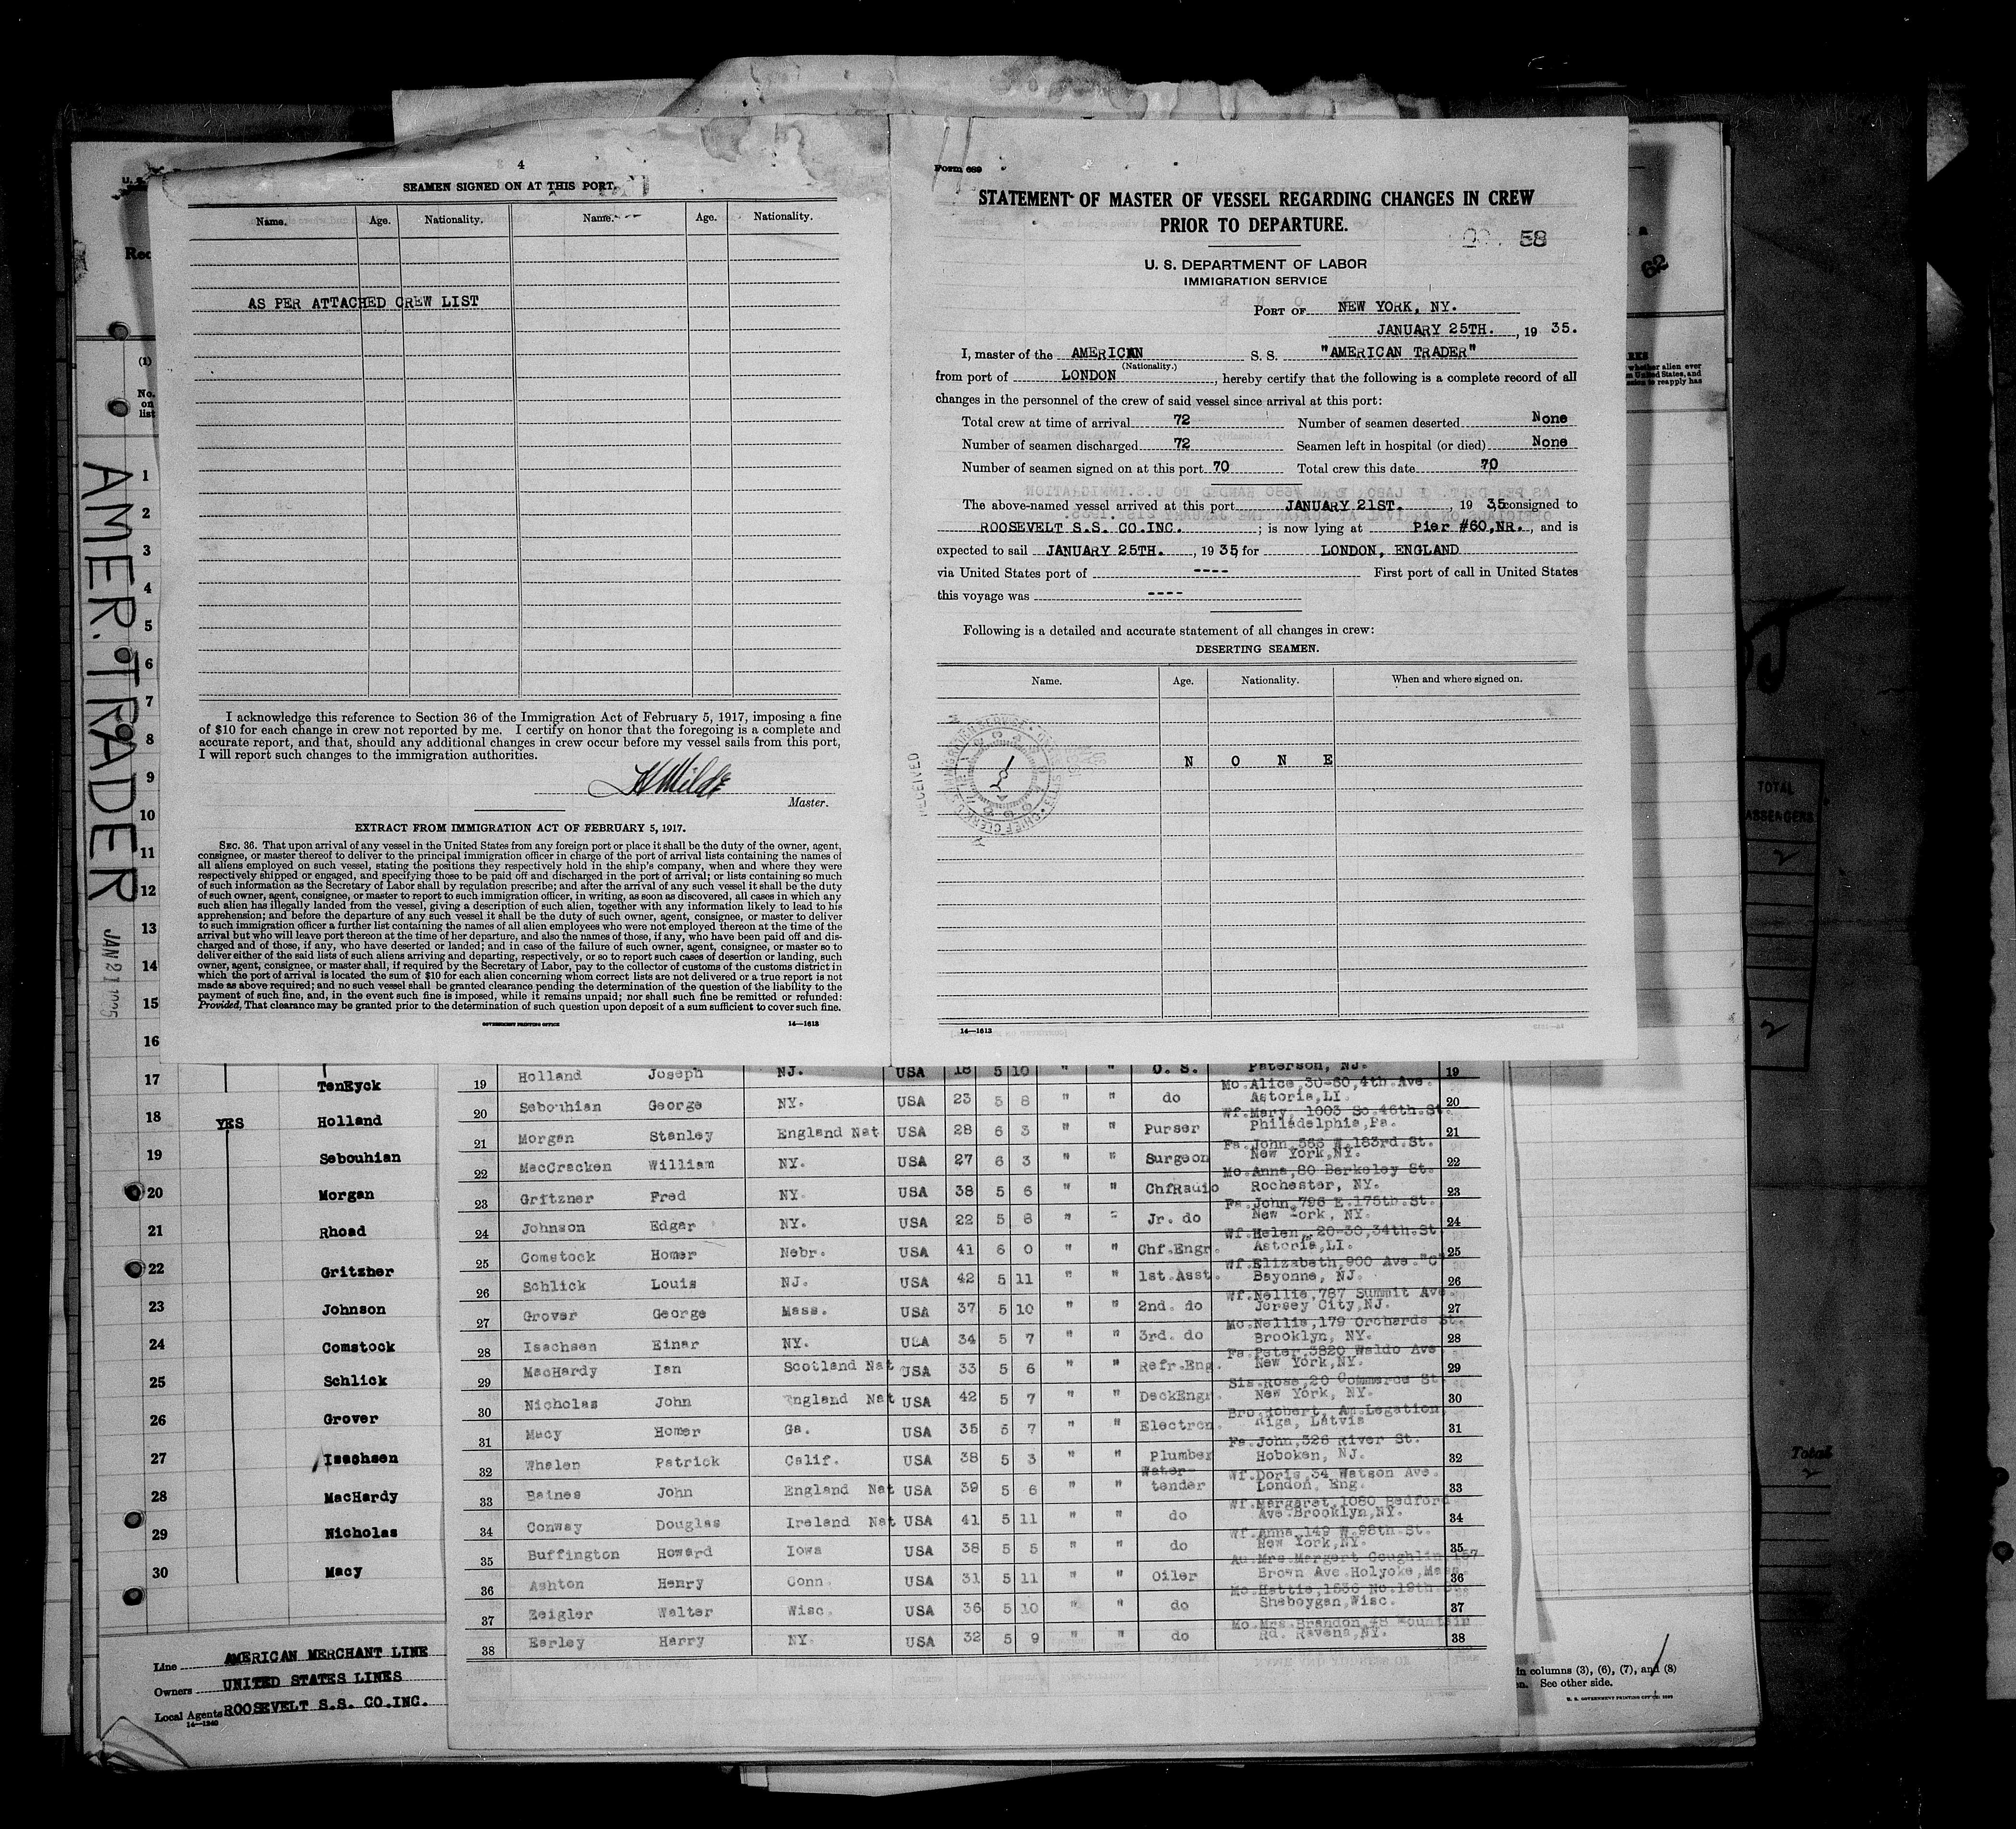 4
SEAMEN SIGNED ON AT THIS PORT.
Name. Age. Nationality. Name. Age. Nationality.
AS PER ATTACHED CREW LIST
I acknowledge this reference to Section 36 of the Immigration Act of February 5, 1917, imposing a fine
of $10 for each change in crew not reported by me. I certify on honor that the foregoing is a complete and
accurate report, and that, should any additional changes in crew occur before my vessel sails from this port,
I will report such changes to the immigration authorities.
Master.
EXTRACT FROM IMMIGRATION ACT OF FEBRUARY 5, 1917.
SEC. 36. That upon arrival of any vessel in the United States from any foreign port or place it shall be the duty of the owner, agent,
consignee, or master thereof to deliver to the principal immigration officer in charge of the port of arrival lists containing the names of
all aliens employed on such vessel, stating the positions they respectively hold in the ship's company, when and where they were
respectively shipped or engaged, and specifying those to be paid off and discharged in the port of arrival; or lists containing so much
of such information as the Secretary of Labor shall by regulation prescribe; and after the arrival of any such vessel it shall be the duty
of such owner, agent, consignee, or master to report to such immigration officer, in writing, as soon as discovered, all cases in which any
such alien has illegally landed from the vessel, giving a description of such alien, together with any information likely to lead to his
apprehension; and before the departure of any such vessel it shall be the duty of such owner, agent, consignee, or master to deliver
to such immigration officer a further list containing the names of all alien employees who were not employed thereon at the time of the
arrival but who will leave port thereon at the time of her departure, and also the names of those, if any, who have been paid off and dis-
charged and of those, if any, who have deserted or landed; and in case of the failure of such owner, agent, consignee, or master so to
deliver either of the said lists of such aliens arriving and departing, respectively, or so to report such cases of desertion or landing, such
owner, agent, consignee, or master shall, if required by the Secretary of Labor, pay to the collector of customs of the customs district in
which the port of arrival is located the sum of $10 for each alien concerning whom correct lists are not delivered or a true report is not
made as above required; and no such vessel shall be granted clearance pending the determination of the question of the liability to the
payment of such fine, and, in the event such fine is imposed, while it remains unpaid; nor shall such fine be remitted or refunded:
Provided, That clearance may be granted prior to the determination of such question upon deposit of a sum sufficient to cover such fine.
GOVERNMENT PRINTING OFFICE 14—1613
Form 689
STATEMENT OF MASTER OF VESSEL REGARDING CHANGES IN CREW
PRIOR TO DEPARTURE.
58
U. S. DEPARTMENT OF LABOR
IMMIGRATION SERVICE
PORT OF NEW YORK, NY.
JANUARY 25TH. , 19 35.
I, master of the AMERICAN S. S. "AMERICAN TRADER"
(Nationality.)
from port of LONDON , hereby certify that the following is a complete record of all
changes in the personnel of the crew of said vessel since arrival at this port:
Total crew at time of arrival 72 Number of seamen deserted None
Number of seamen discharged 72 Seamen left in hospital (or died) None
Number of seamen signed on at this port 70 Total crew this date 70
The above-named vessel arrived at this port JANUARY 21ST. , 19 35 consigned to
ROOSEVELT S.S. CO.INC. ; is now lying at Pier #60,NR. , and is
expected to sail JANUARY 25TH. , 19 35 for LONDON, ENGLAND
via United States port of ---- First port of call in United States
this voyage was ----
Following is a detailed and accurate statement of all changes in crew:
DESERTING SEAMEN.
Name. Age. Nationality. When and where signed on.
N O N E
RECEIVED
14—1613
62
(1)
No.
on
list
AMER. TRADER
JAN 21 1935
1
2
3
4
5
6
7
8
9
10
11
12
13
14
15
16
17 TenEyck
18 YES Holland
19 Sebouhian
20 Morgan
21 Rhoad
22 Gritzner
23 Johnson
24 Comstock
25 Schlick
26 Grover
27 Isachsen
28 MacHardy
29 Nicholas
30 Macy
Line AMERICAN MERCHANT LINE
Owners UNITED STATES LINES
Local Agents ROOSEVELT S.S. CO.INC.
14—1240
19 Holland Joseph NJ. USA 18 5 10 " " O. S. Paterson, NJ. 19
20 Sebouhian George NY. USA 23 5 8 " " do Mo.Alice,30-60,4th.Ave. Astoria,LI. 20
21 Morgan Stanley England Nat USA 28 6 3 " " Purser Wf.Mary, 1003 So.46th.St. Philadelphia,Pa. 21
22 MacCracken William NY. USA 27 6 3 " " Surgeon Fa.John,566 W.183rd.St. New York,NY. 22
23 Gritzner Fred NY. USA 38 5 6 " " ChfRadio Mo.Anna,80 Berkeley St. Rochester, NY. 23
24 Johnson Edgar NY. USA 22 5 8 " " Jr. do Fa.John,796 E.175th.St. New York, NY. 24
25 Comstock Homer Nebr. USA 41 6 0 " " Chf.Engr. Wf.Helen, 20-30,34th.St Astoria,LI. 25
26 Schlick Louis NJ. USA 42 5 11 " " 1st.Asst. Wf.Elizabeth,900 Ave."C" Bayonne, NJ. 26
27 Grover George Mass. USA 37 5 10 " " 2nd. do Wf.Nellie,787 Summit Ave. Jersey City,NJ. 27
28 Isachsen Einar NY. USA 34 5 7 " " 3rd. do Mo.Nellie,179 Orchards St. Brooklyn, NY. 28
29 MacHardy Ian Scotland Nat USA 33 5 6 " " Refr.Eng. Fa.Peter,3820 Waldo Ave New York,NY. 29
30 Nicholas John England Nat USA 42 5 7 " " DeckEngr. Sis.Rose,20 Commerce St. New York, NY. 30
31 Macy Homer Ga. USA 35 5 7 " " Electren. Bro.Robert, Am.Legation, Riga, Latvis 31
32 Whalen Patrick Calif. USA 38 5 3 " " Plumber Fa.John,326 River St. Hoboken, NJ. 32
33 Baines John England Nat USA 39 5 6 " " Water-tender Wf.Doris,34 Watson Ave. London, Eng. 33
34 Conway Douglas Ireland Nat USA 41 5 11 " " do Wf.Margaret,1080 Bedford Ave.Brooklyn,NY. 34
35 Buffington Howard Iowa USA 38 5 5 " " do Wf.Anna,149 W.98th.St. New York,NY. 35
36 Ashton Henry Conn. USA 31 5 11 " " Oiler Au.Mrs.Margert Coughlin,157 Brown Ave.Holyoke,Mass. 36
37 Zeigler Walter Wisc. USA 36 5 10 " " do Mo.Hattie,1636 No.19th. Sheboygan,Wisc. 37
38 Earley Harry NY. USA 32 5 9 " " do Mo.Mrs.Brandon,48 Mountain Rd. Ravena,NY. 38
in columns (3), (6), (7), and (8)
See other side.
U. S. GOVERNMENT PRINTING OFFICE
TOTAL
PASSENGERS
2
2
Total
2